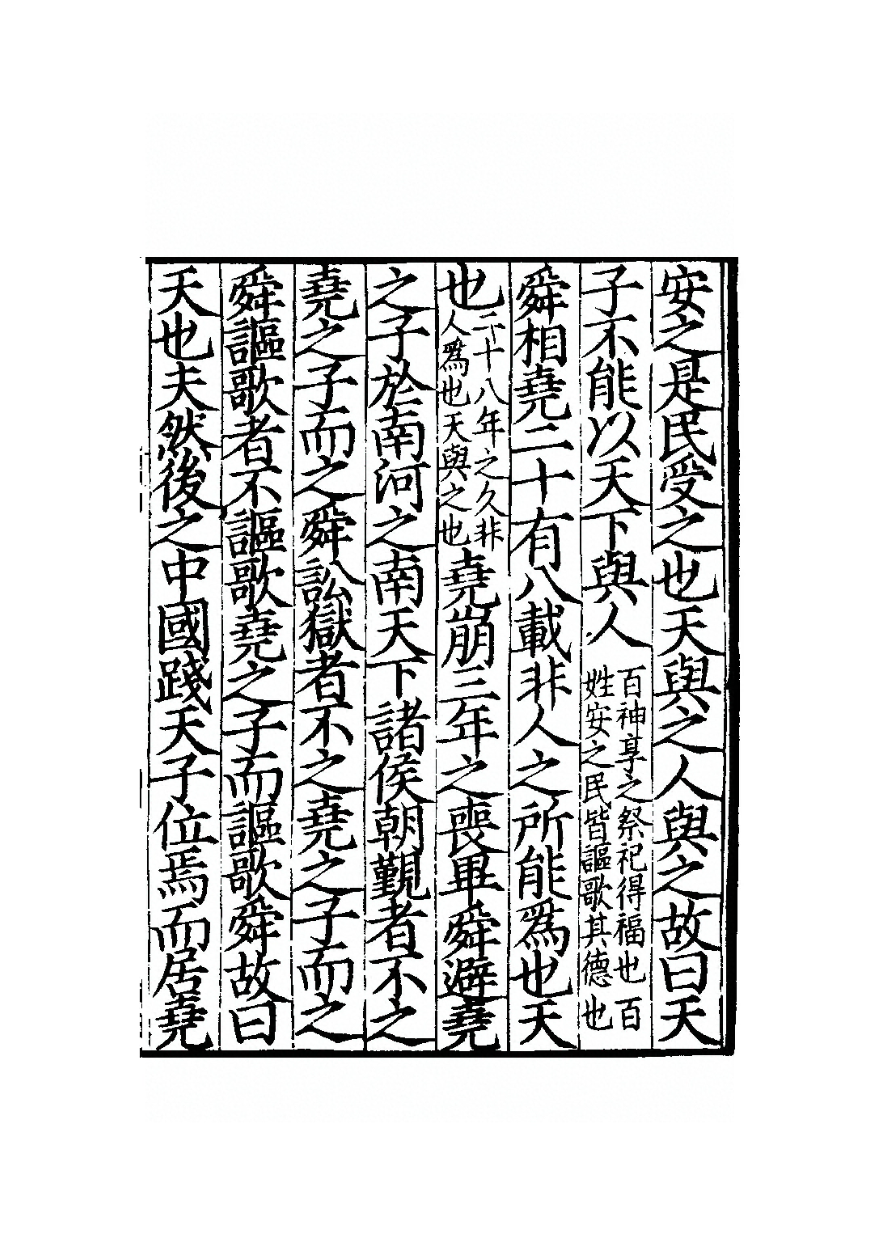 安之是民受之也天與之人與之故曰天
子不能以天下與人百神享之祭祀得福也百姓安之民皆謳歌其德也
舜相堯二十有八載非人之所能爲也天
也二十八年之久非人爲也天與之也堯崩三年之喪畢舜避堯
之子於南河之南天下諸侯朝覲者不之
堯之子而之舜訟獄者不之堯之子而之
舜謳歌者不謳歌堯之子而謳歌舜故曰
天也夫然後之中國踐天子位焉而居堯